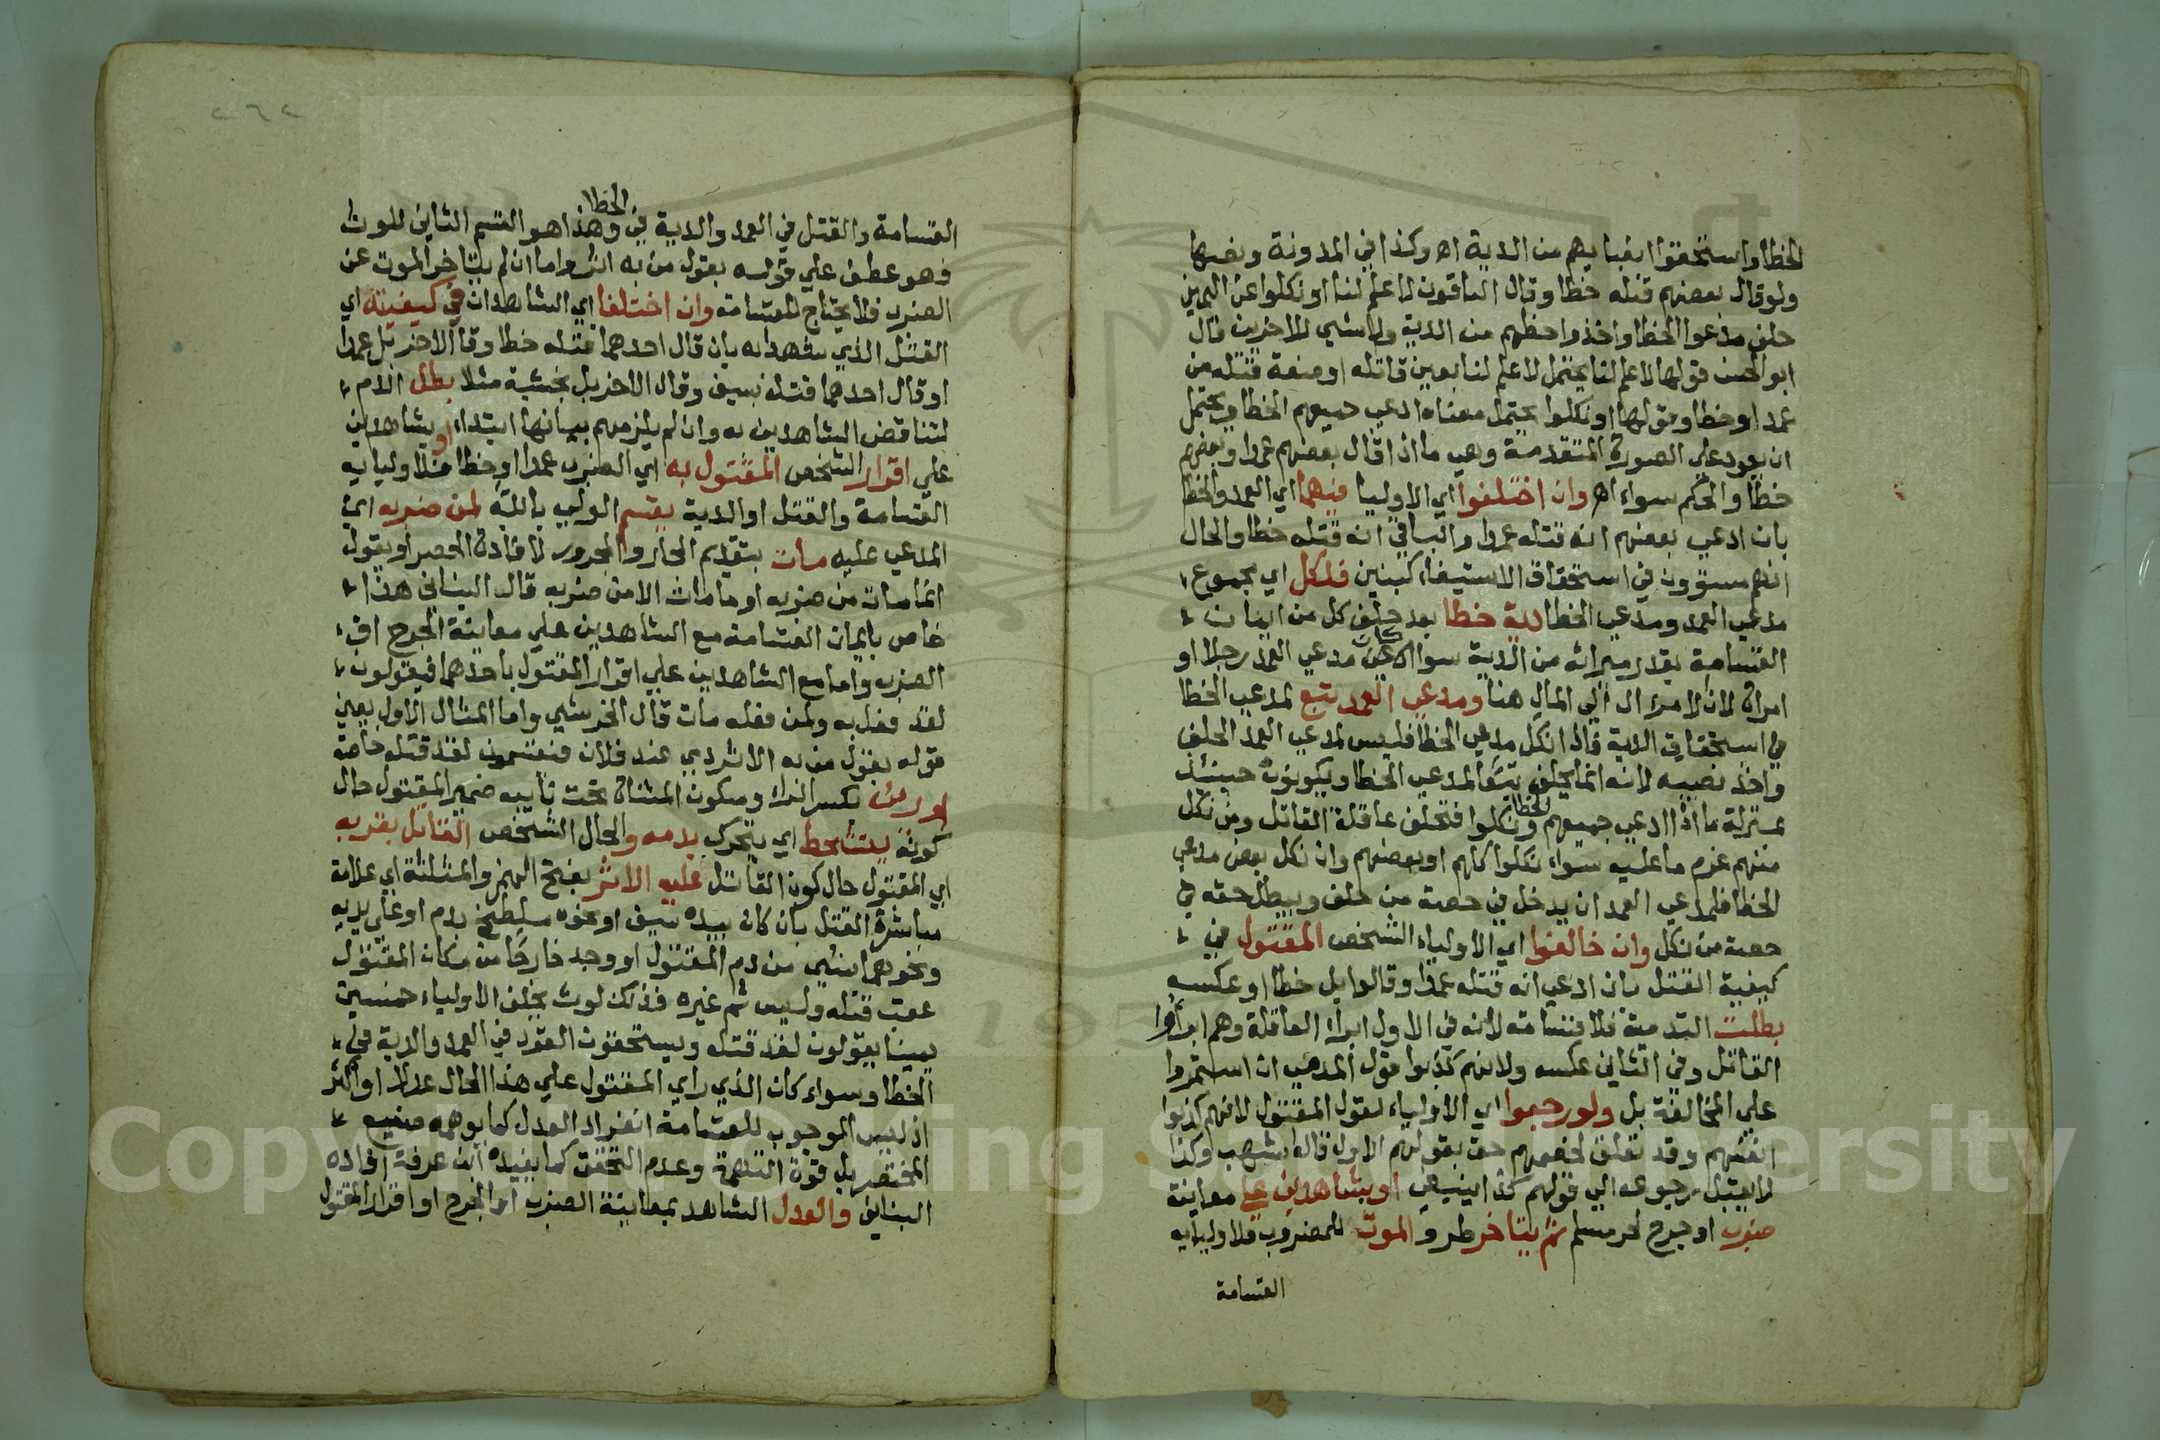 الخطا واستحقوا انصباهم من الدية اه وكذا في المدونة ونصها
ولو قال بعضهم قتله خطا وقال الباقون لا علم لنا او نكلوا عن اليمين
حلف مدعوا الخطا واخذوا حظهم من الدية ولا شي للاخرين قال
ابو الحسن قولها لا علم لنا يحتمل لا علم لنا بعين قاتله او صفة قتله من
عمد او خطا وقولها او نكلوا يحتمل معناه ادعي جميعهم الخطا ويحتمل
ان يعود علي الصورة المتقدمة وهي ما اذا قال بعضهم عمدا وبعضهم
خطا والحكم سواء اه وان اختلفوا اي الاوليا فيهما اي العمد والخطا
بان ادعي بعضهم انه قتله عمدا والباقي انه قتله خطا والحال
انهم مستوون في استحقاق الاستيفاء كبنين فلكل اي مجموع
مدعي العمد ومدعي الخطا دية خطا بعد حلف كل من ايمان
القسامة بقدر ميراثه من الدية سوا كان مدعي العمد رجلا او
امراة لان الامر ال الي المال هنا ومدعي العمد تبع لمدعي الخطا
في استحقاق الدية فاذا نكل مدعي الخطا فليس لمدعي العمد الحلف
واخذ نصيبه لانه انما يحلف تبعا لمدعي الخطا ويكونون حينئذ
بمنزلة ما اذا ادعي جميعهم الخطا ونكلوا فتحلف عاقلة القاتل ومن نكل
منهم غرم ما عليه سواء نكلوا كلهم او بعضهم وان نكل بعض مدعي
الخطا فلمدعي العمد ان يدخل في حصة من حلف ويبطل حقه في
حصة من نكل وان خالفوا اي الاولياء الشخص المقتول في
كيفية القتل بان ادعي انه قتله عمدا وقالوا بل خطا او عكسه
بطلت التدمية فلا قسامة لانه في الاول ابراء العاقلة وهم ابراوا
القاتل وفي الثاني عكسه ولانهم كذبوا قول المدمي ان استمروا
علي المخالفة بل ولو رجعوا اي الاولياء لقول المقتول لانهم كذبوا
انفسهم وقد تعلق لخصمهم حق بقولهم الاول قاله اشهب وكذا
لا يقبل رجوعه الي قولهم كذا ينبغي او بشاهدين علي معاينة
ضرب او جرح لحر مسلم ثم يتاخر طرو الموت للمضروب فلاوليايه
القسامة
القسامة والقتل في العمد والدية في الخطا وهذا هو القسم الثاني للوث
فهو عطف علي قوله بقول من به اثر واما ان لم يتاخر الموت عن
الضرب فلا يحتاج للقسامة وان اختلفا اي الشاهدان في كيفيته اي
القتل الذي شهدا به بان قال احدهما قتله خطا وقال الاخر بل عمدا
او قال احدهما قتله بسيف وقال الاخر بل بخشبة مثلا بطل الدم
لتناقض الشاهدين به وان لم يلزمهم بيانها ابتداء او بشاهدين
علي اقرار الشخص المقتول به اي الضرب عمدا او خطا فلاوليايه
القسامة والقتل او الدية يقسم الولي بالله لمن ضربه اي
المدعي عليه مات بتقديم الجار والمجرور لافادة الحصر او يقول
انما مات من ضربه او ما مات الا من ضربه قال البناني هذا
خاص بايمان القسامة مع الشاهدين علي معاينة الجرح او
الضرب واما مع الشاهدين علي اقرار المقتول باحدهما فيقولون
لقد فعل به ولمن فعله مات قال الخرشي واما المثال الاول يعني
قوله بقول من به الاثر دمي عند فلان فيقسمون لقد قتله خاصة
او رءي بكسر الراء وسكون المثناة تحت نايبه ضمير المقتول حال
كونه يتشحط اي يتحرك بدمه والحال الشخص القاتل بقربه
اي المقتول حال كون القاتل عليه الاثر بفتح الهمز والمثلثة اي علامة
مباشرة القتل بان كان بيده سيف او نحوه ملطخ بدم او علي يديه
ونحوهما شي من دم المقتول او وجد خارجا من مكان المقتول
عقب قتله وليس ثم غيره فذلك لوث يحلف الاولياء خمسين
يمينا يقولون لقد قتله ويستحقون القود في العمد والدية في
الخطا وسواء كان الذي راي المقتول علي هذا الحال عدلا او اكثر
اذ ليس الموجب للقسامة انفراد العدل كما يوهمه صنيع
المختصر بل قوة التهمة وعدم التحقق كما يفيده ابن عرفة افاده
البناني والعدل الشاهد بمعاينة الضرب او الجرح او اقرار المقتول
Copyright © King Saud University